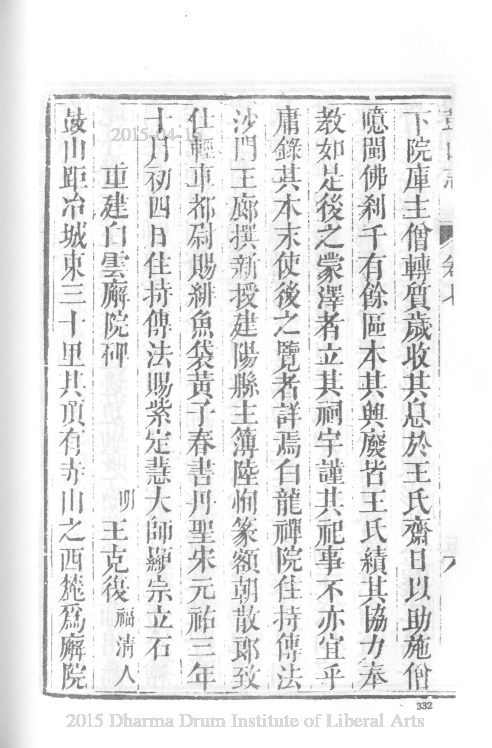 鼓山志
卷七
下院庫主僧轉質歲收其息於王氏齋日以助施僧
噫閩佛剎千有餘區本其興廢皆王氏績其協力奉
教如是後之蒙澤者立其祠宇謹其祀事不亦宜乎
庸錄其本末使後之覽者詳焉白龍禪院住持傳法
沙門王廊撰新授建陽縣主簿陸恂篆額朝散郎致
仕輕車都尉賜緋魚袋黃子春書丹聖宋元祐三年
十月初四日住持傳法賜紫定慧大師顯宗立石
重建白雲廨院碑 明 王克復 福清人
鼓山距冶城東三十里其頂有寺山之西麓爲廨院
332
2015-04-15
2015 Dharma Drum Institute of Liberal Arts